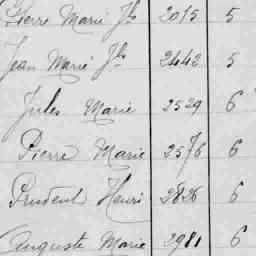 Pierre Marie Jh 2015 5
Jean Marie Jh 2442 5
Jules Marie 2529 6
Pierre Marie 2576 6
Prudent Henri 2826 6
Auguste Marie 2981 6